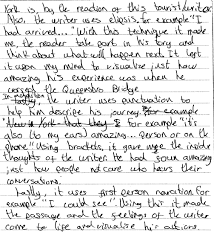 is, by the reaction of this tourist/writer.
Also, the writer uses elipsis, for example "I
had arrived..." With this technique it made
me, the reader take part in his story and
think about what will happen next. It left
it upon my mind to visualise just how
amazing his experience was when he
crossed the Queensbro Bridge
In addition
the writer uses punctuation to
help him describe his journey. for example
for example "it's
also (to my ears) amazing... person or on the
phone". Using brackets, it gave me the inside
thoughts of the writer. He had soun amazing
just how people not care who hears their
conversations.
Lastly, it uses first person narration for
example "I could see". Using this it made
the passage and the feelings of the writer
come to life and visualise his actions.